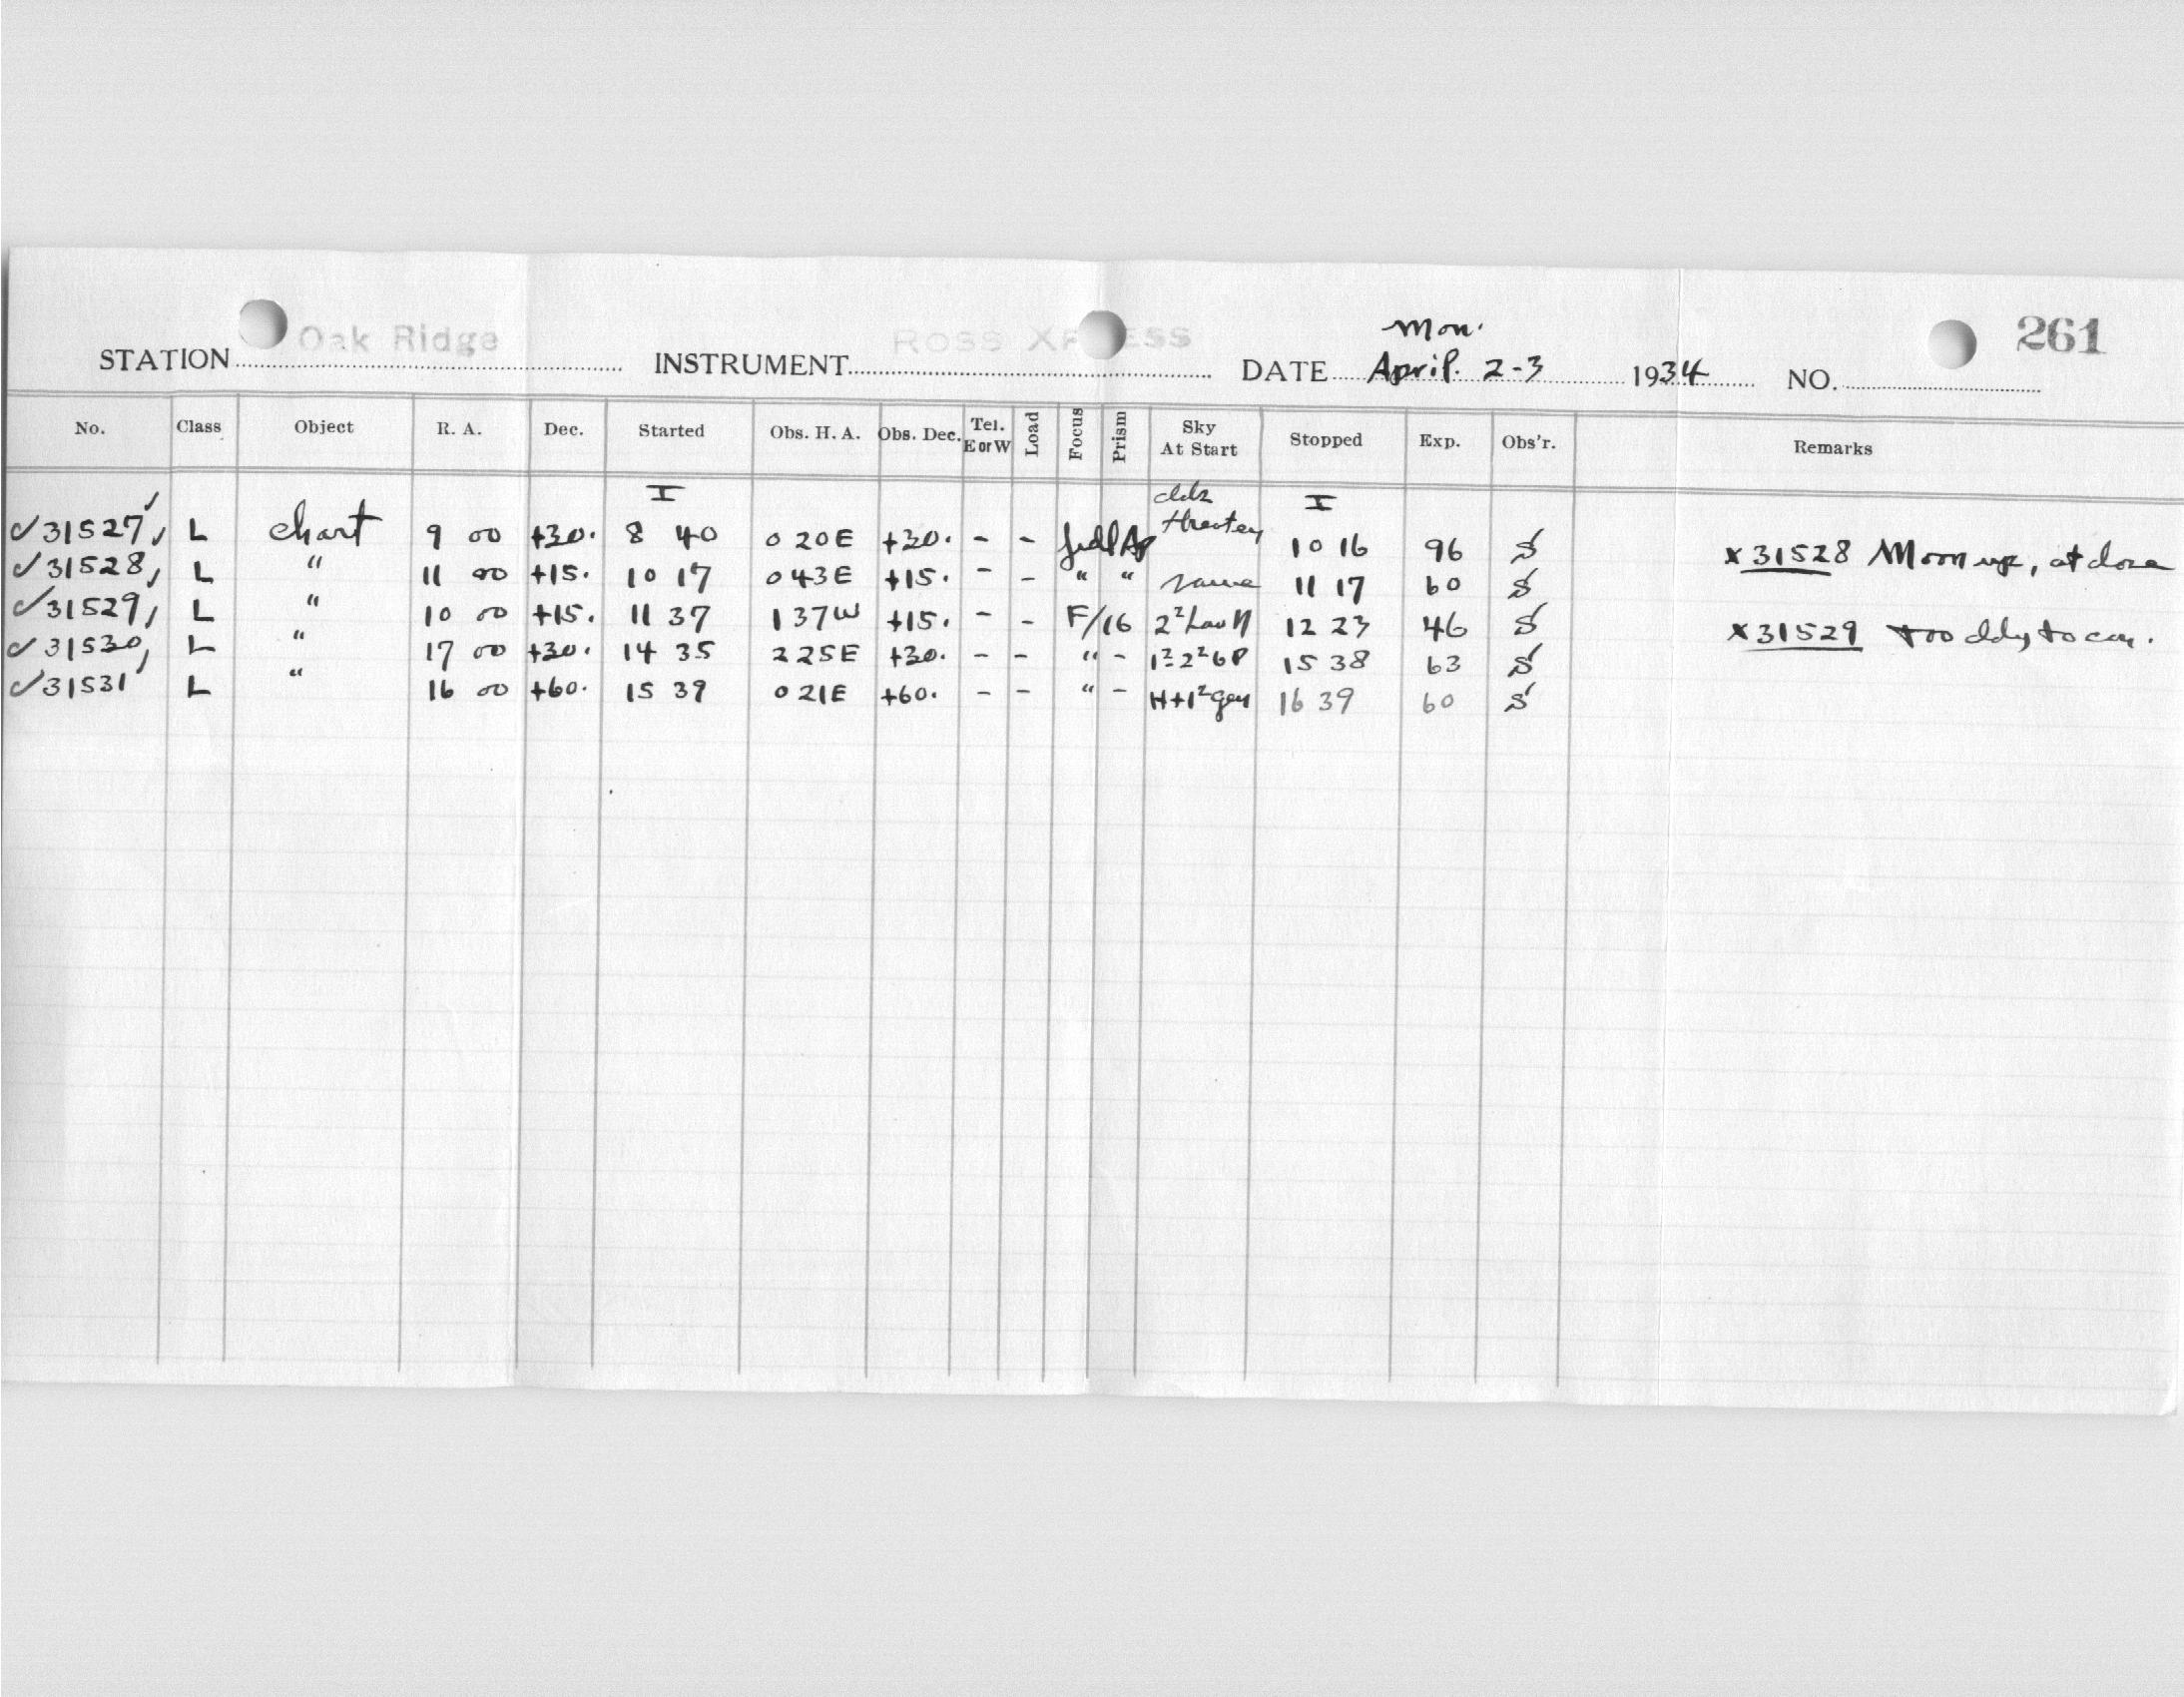 Mon.
STATION Oak Ridge INSTRUMENT Ross XPRESS DATE April. 2-3 1934 NO. 261
No. Class Object R. A. Dec. Started Obs. H. A. Obs. Dec. Tel. E or W Load Focus Prism Sky At Start Stopped Exp. Obs'r. Remarks
I I
31527 L chart 9 00 +30. 8 40 0 20E +30. - - full Ap threaten 10 16 96 S
31528 L " 11 00 +15. 10 17 0 43E +15. - - " " same 11 17 60 S x 31528 Moon up, at close
31529 L " 10 00 +15. 11 37 1 37W +15. - - F/16 12 23 46 S x 31529 too cldy to
31530 L " 17 00 +30. 14 35 2 25E +30. - - " - 15 38 63 S
31531 L " 16 00 +60. 15 39 0 21E +60. - - " - 16 39 60 S